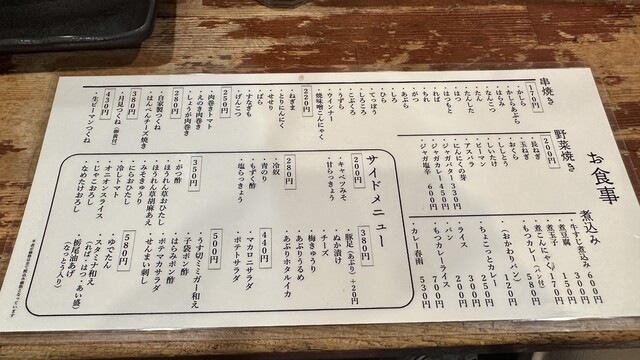 お食事
串焼き
170円
・かしら
・かしらあぶら
・はらみ
・なんこつ
・たんした
・たん
・はつ
・はつもと
・れば
・ちれ
・がつ
・あぶら
・しろ
・ひら
・てっぽう
・しろころ
・こぶくろ
・うずら
・ウインナー
・焼味噌こんにゃく
220円
・ねぎま
・とりにんにく
・せせり
・ぼら
・すなぎも
・げんこつ
250円
・肉巻きトマト
・えのき肉巻き
・しょうが肉巻き
280円
・自家製つくね
・はんぺんチーズ焼き
380円
・月見つくね(卵黄付)
430円
・生ピーマンつくね
野菜焼き
200円
・長ねぎ
・玉ねぎ
・おくら
・ししとう
・しいたけ
・ピーマン
・アスパラ
・にんにくの芽
・ジャガバター 330円
・ジャガカレー 450円
・ジャガ塩辛 600円
煮込み
・牛すじ煮込み 600円
・煮豆腐 300円
・煮玉子 150円
・煮こんにゃく 170円
・もつカレー(パン付) 580円
(おかわりパン) 120円
・ちょこっとカレー 250円
・ライス 200円
・パン 300円
・もつカレーライス 700円
・カレー春雨 530円
サイドメニュー
200円
・キャベツみそ
・甘らっきょう
280円
・冷奴
・青のり
・もずく酢
・塩らっきょう
350円
・がつ酢
・ほうれん草おひたし
・ほうれん草胡麻あえ
・みそきゅうり
・にらおひたし
・冷しトマト
・オニオンスライス
・じゃこおろし
・なめたけおろし
380円
・豚足(あぶり)+20円
・ぬか漬け
・チーズ
・梅きゅうり
・あぶりうるめ
・あぶりホタルイカ
440円
・マカロニサラダ
・ポテトサラダ
500円
・うす切ミミガー和え
・子袋ポン酢
・はらみポン酢
・ポテマカサラダ
・せんまい刺し
580円
・ゆでたん
・スタミナ和え
(れば・はつ・あい盛)
・栃尾油あげ
(なっとう入り)